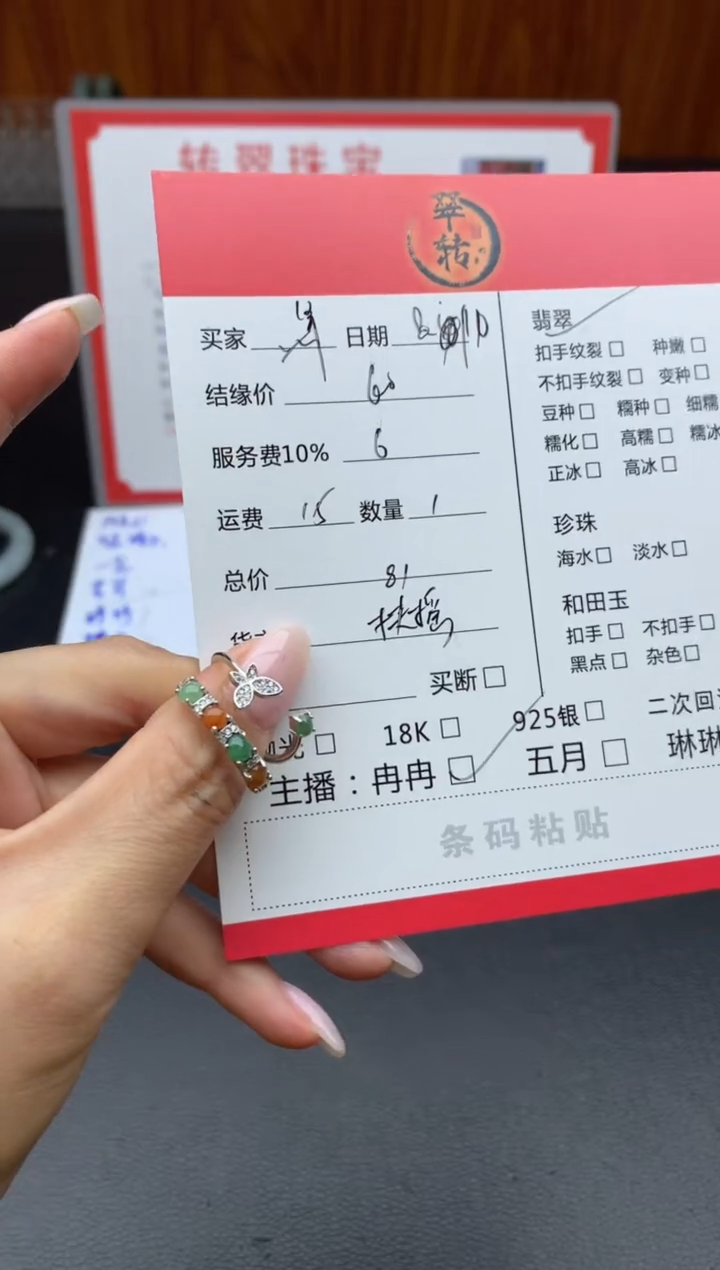 转翠珠宝
翠
转
买家 日期
结缘价 60
服务费10% 6
运费 15 数量 1
总价 81
扶摇
买断
18K 925银 二次回
主播：冉冉 五月 琳琳
条码粘贴
翡翠
扣手纹裂 种嫩
不扣手纹裂 变种
豆种 糯种 细糯
糯化 高糯 糯冰
正冰 高冰
珍珠
海水 淡水
和田玉
扣手 不扣手
黑点 杂色